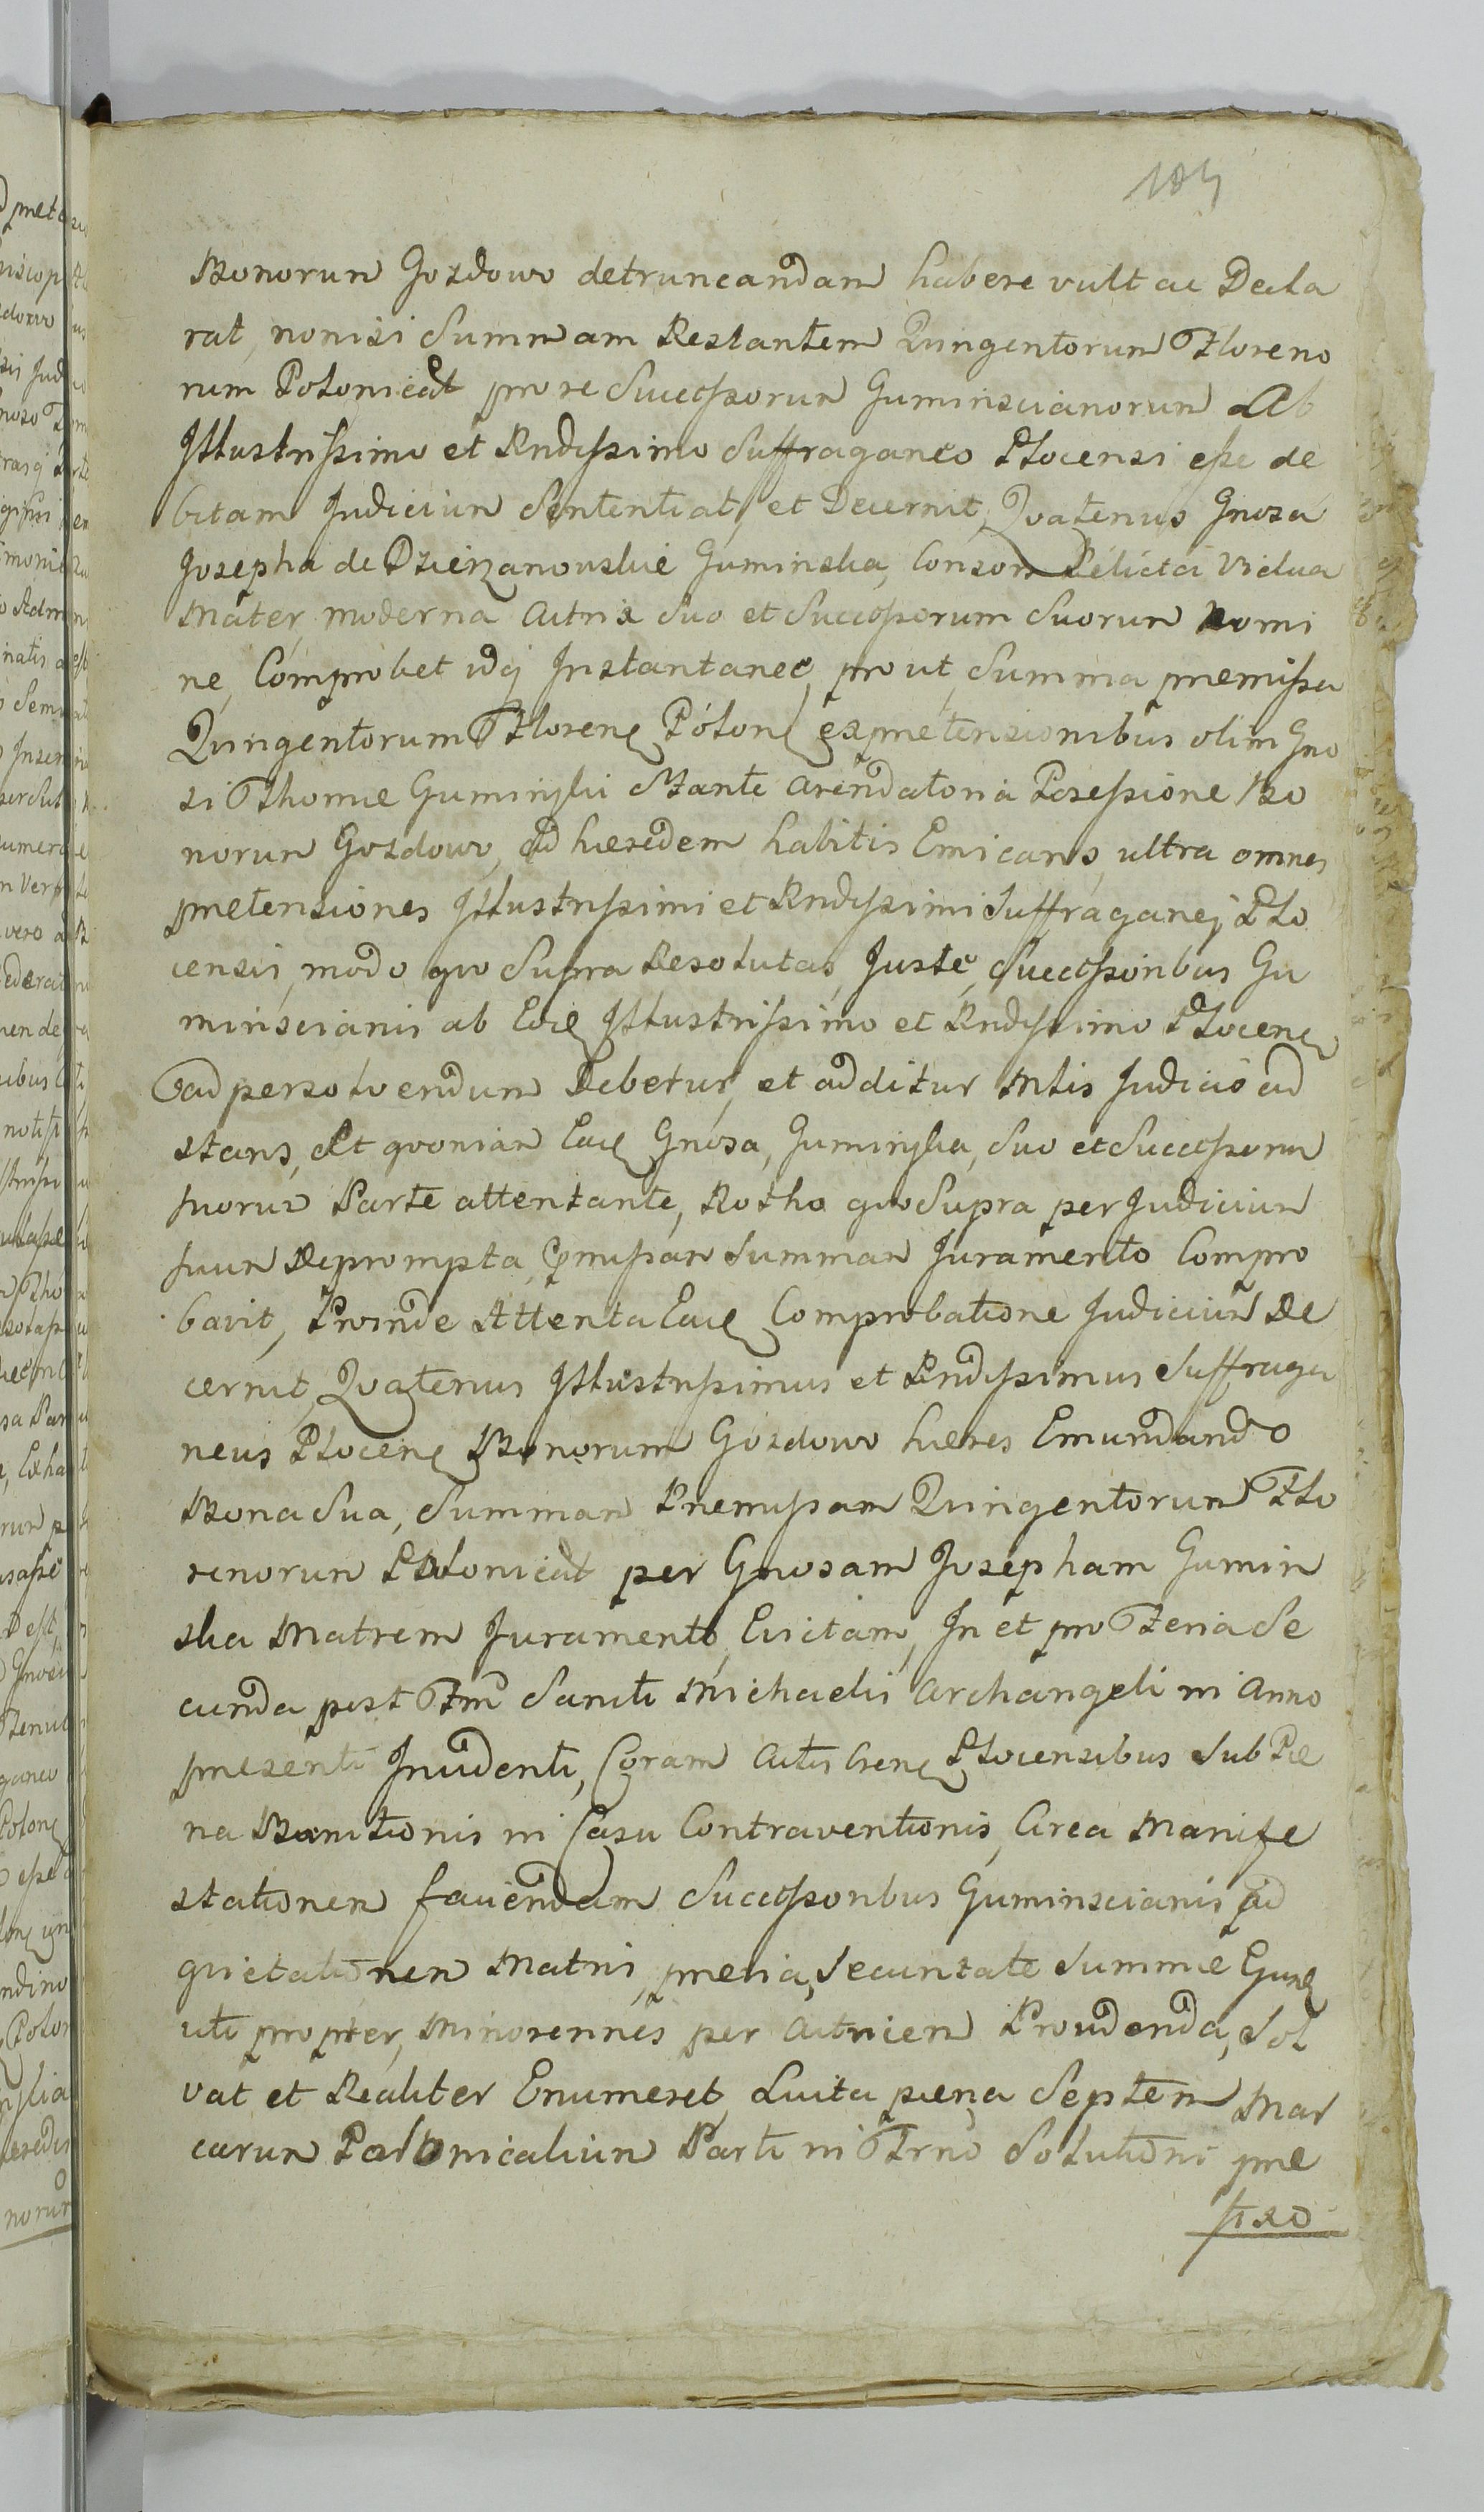 Bonorum Gozdowo detruncandam habere vult ac Decla
rat, nonisi Summam Restantem Quingentorum Floreno
rum Polonical pro re Successorum Guminscianorum Ab
Illustrissimo et Rndissimo Suffraganeo Plocensi esse de
bitam Judicium Sententiat, et Decernit, Qvatenus Gnosa
Josepha de Dzierzanouskie Guminska, Consors Relicta Vidua
Mater, moderna Actrix Suo et Successorum Suorum Nomi
ne, Comprobet idq Instantanee, pro ut, Summa premissa
Quingentorum Floren Polon ex pretensionibus olim Gno
si Thomæ Guminski Stante arendatoria Possessione Bo
norum Gozdowo, ad hæredem habitis Emicans, ultra omnes
pretensiones Illustrissimi et Rndissimi Suffraganej Plo
censis, modo quo Supra Resolutas, Juste, Successoribus Gu
minscianis ab Eod Illustrissimo et Rndissimo Plocen
ad persolvendum Debetur, et additur Mtis Judicio ad
stans, Et qvoniam Ead Gnosa, Guminska, Suo et Successorum
suorum Parte attentante, Rotha quo Supra per Judicium
suum Deprompta, pmissam Summam Juramento Compro
bavit, Proinde Attenta Ead Comprobatione Judicium De
cernit, Qvatenus Illustrissimus et Rndissimus Suffraga
neus Plocen Bonorum Gozdowo hæres Emundando
Bona Sua, Summam Premissam Quingentorum Flo
renorum Polonical per Gnosam Josepham Gumin
ska Matrem Juramento, Evictam, In et pro Feria Se
cunda post Fm Sancti Michaelis Archangeli in Anno
presenti Incidenti, Coram Actis Cren Plocensibus Sub Pæ
na Banitionis in Casu Contraventionis, Circa Manife
stationem faciendam Successoribus Guminscianis ad
quietationem Matri, previa, Securitate Summæ
uti propter, Minorennes per Actricem Providenda, Sol
vat et Realiter Enumeret Luita pæna Septem Mar
carum Polonicalium Parti in Frno Solutioni præ
fixo